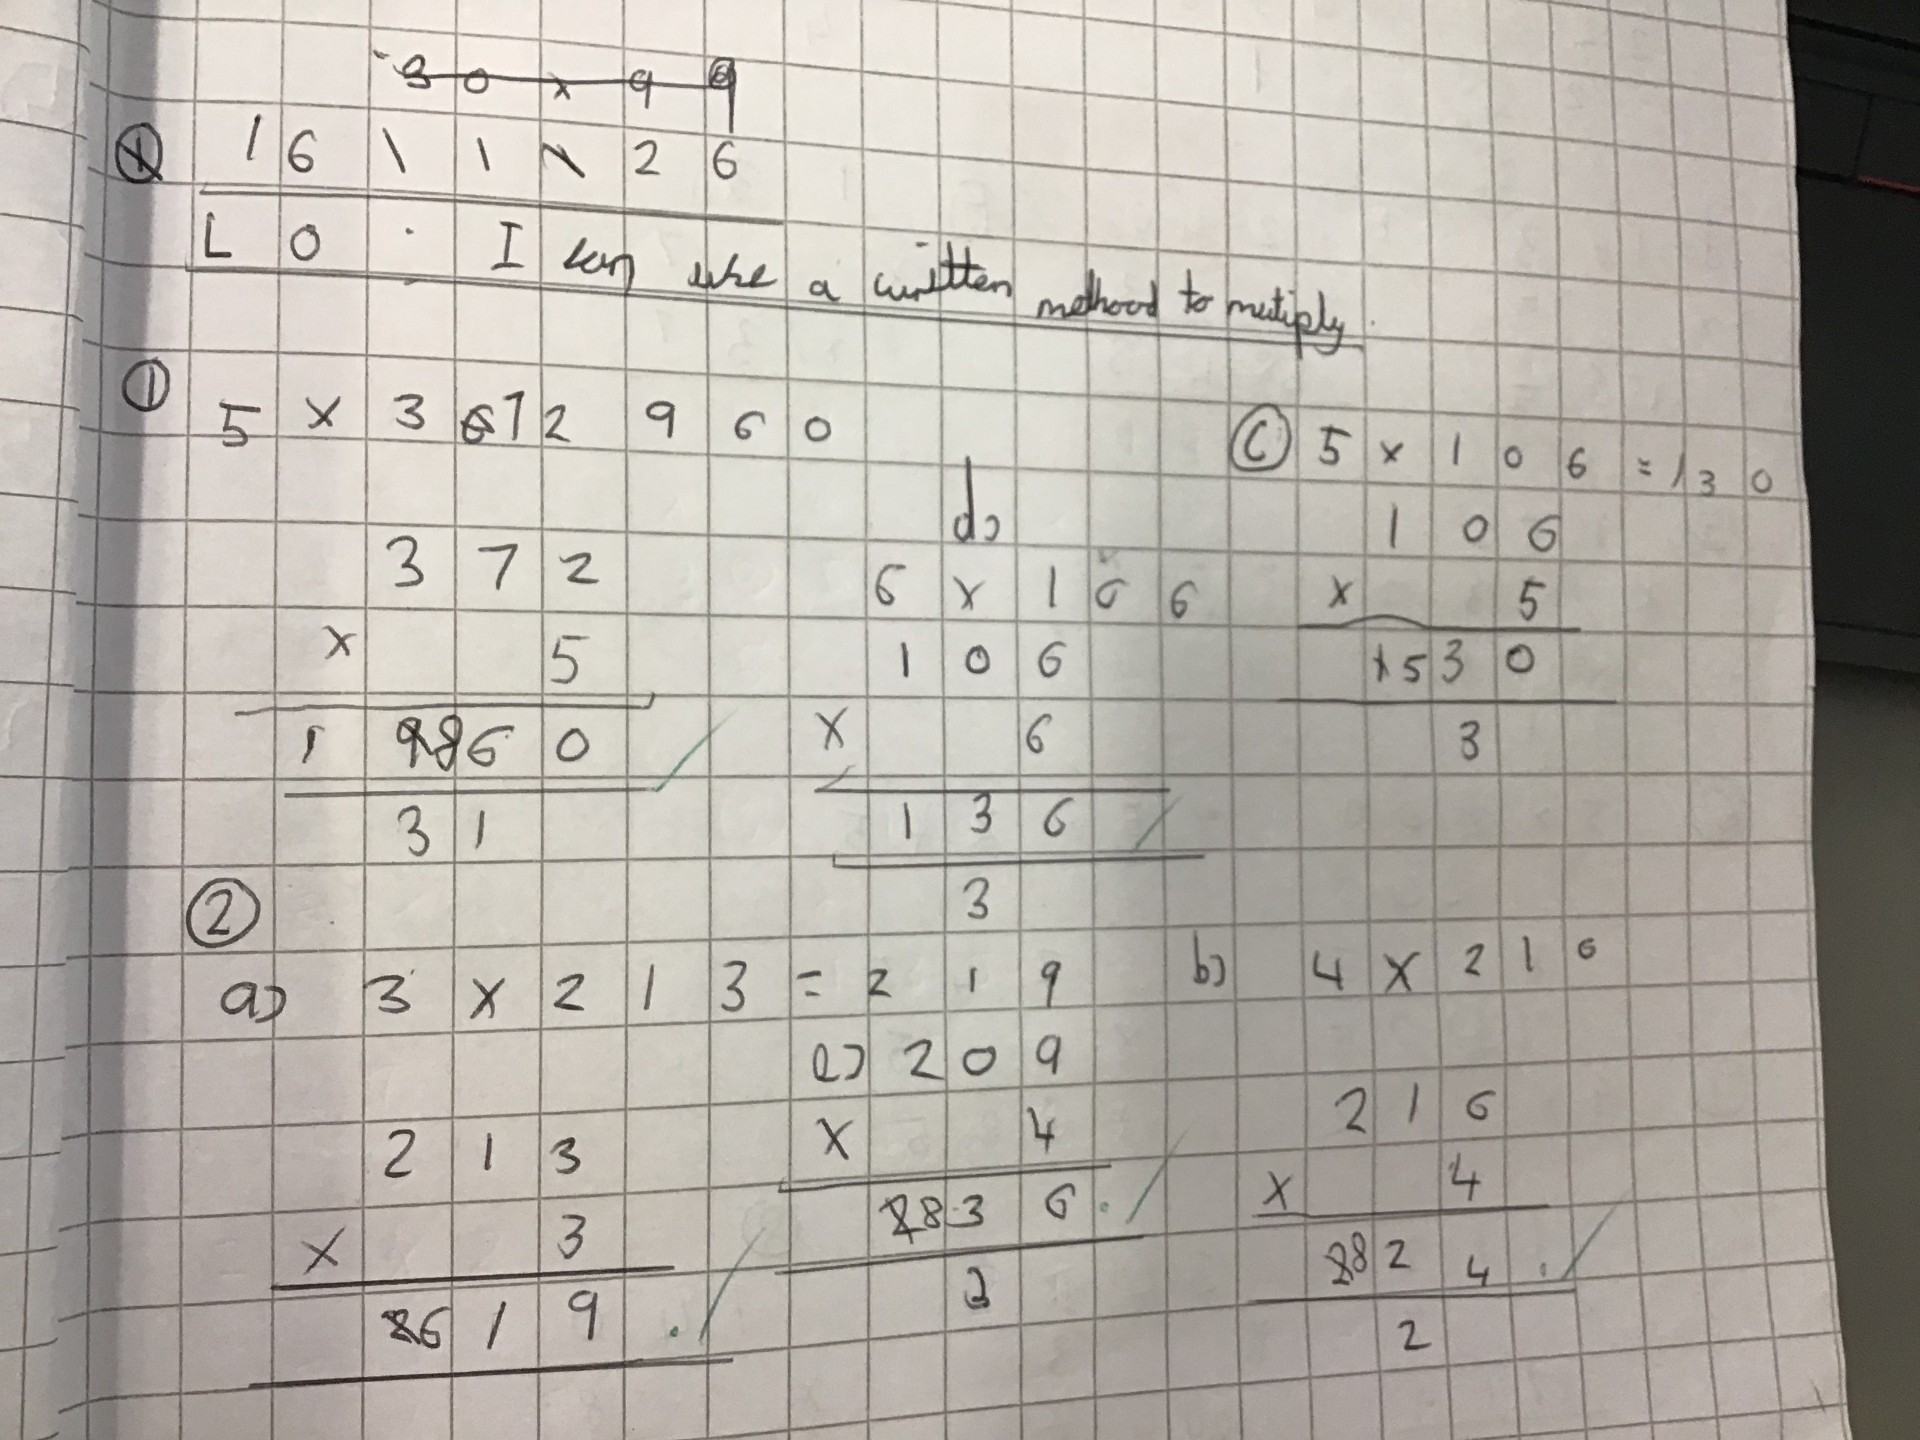 30 x 99
16 11 26
LO. I can use a written methood to mutiply.
① 5 x 372 960
372
x 5
1860
31
d)
6 x 106
106
x 6
136
3
Ⓒ 5 x 106 = 130
106
x 5
530
3
②
a) 3 x 213 = 219
213
x 3
619
c) 209
x 4
836
2
b) 4 x 216
216
x 4
824
2